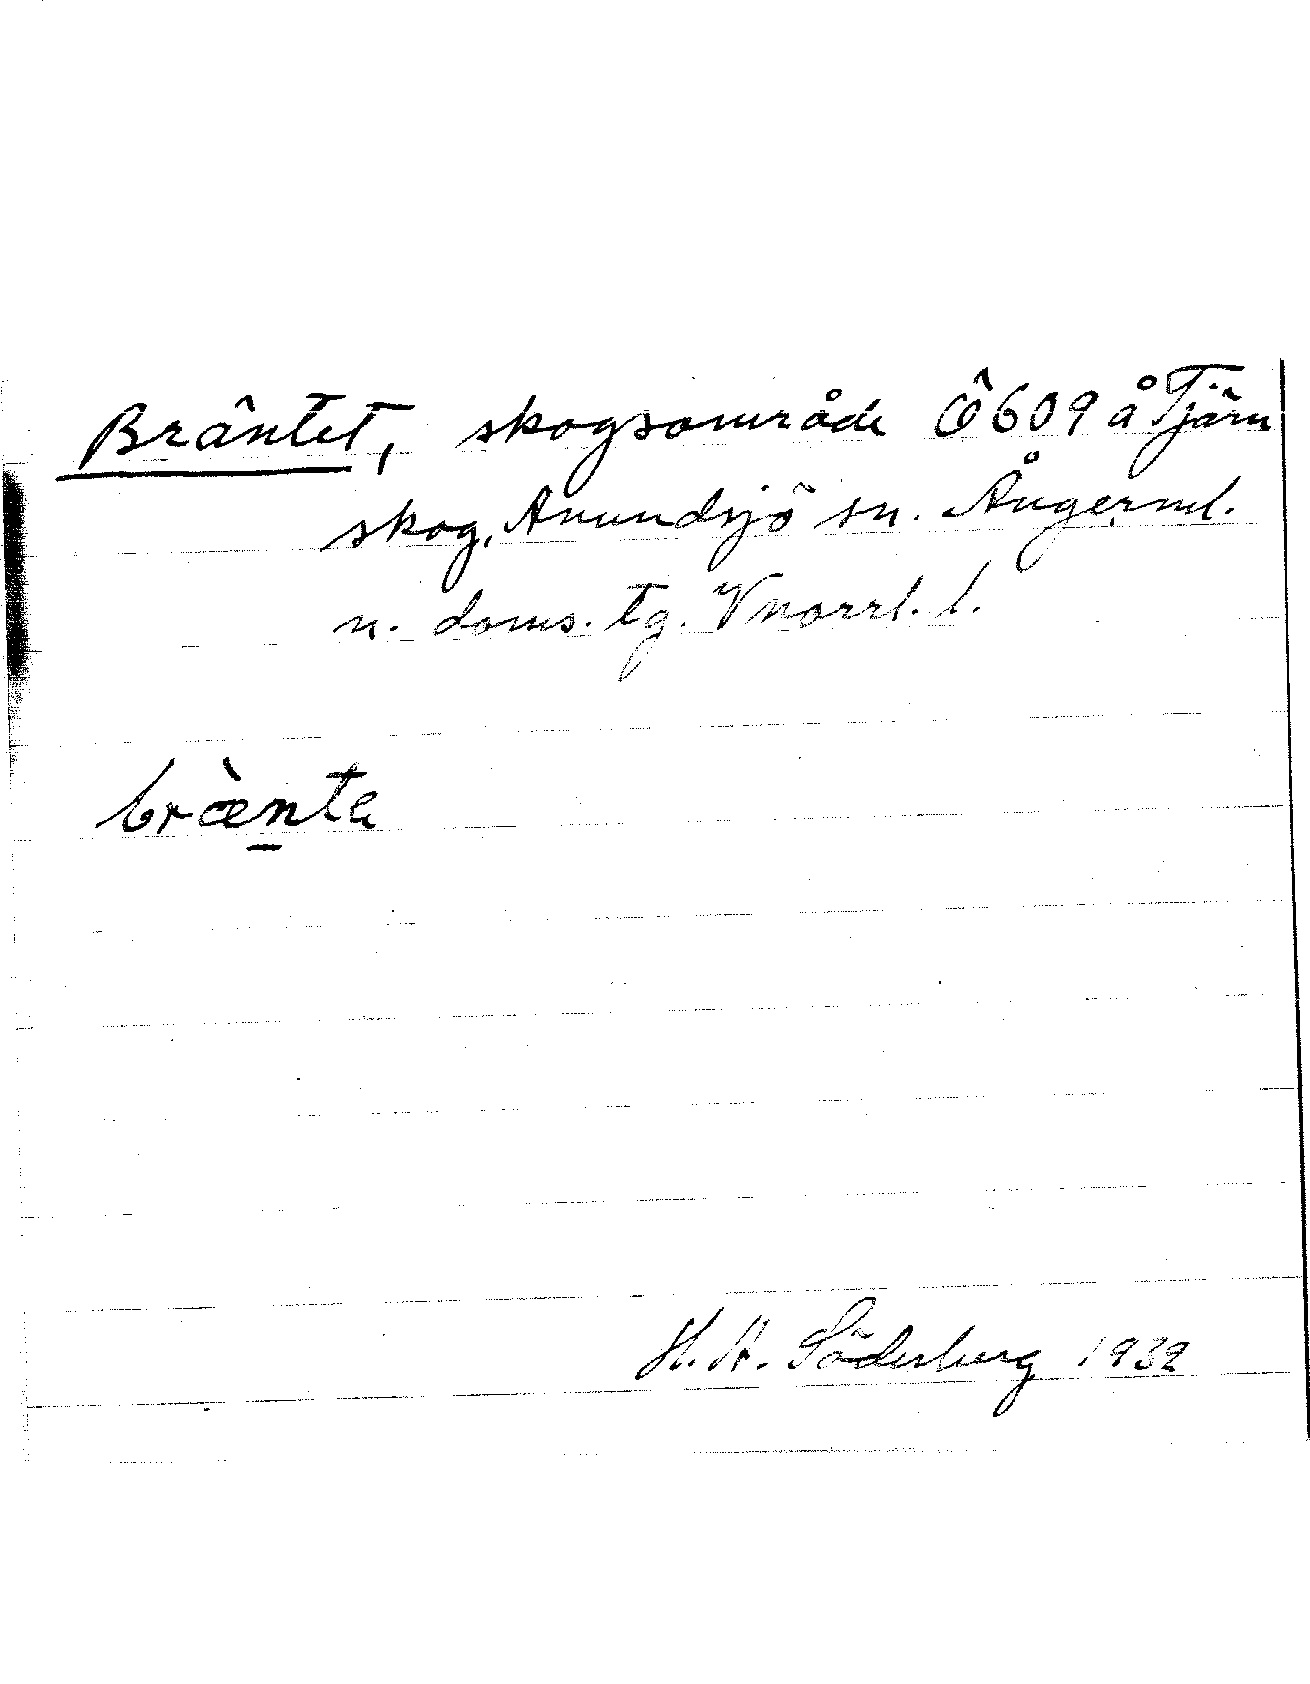 Bräntet, skogsområde Ö609 å Tjärn
skog, Anundsjö sn. Ångerml.
n. doms. tg. Vnorrl. l.
bræ̀nta
H. A. Söderberg 1932